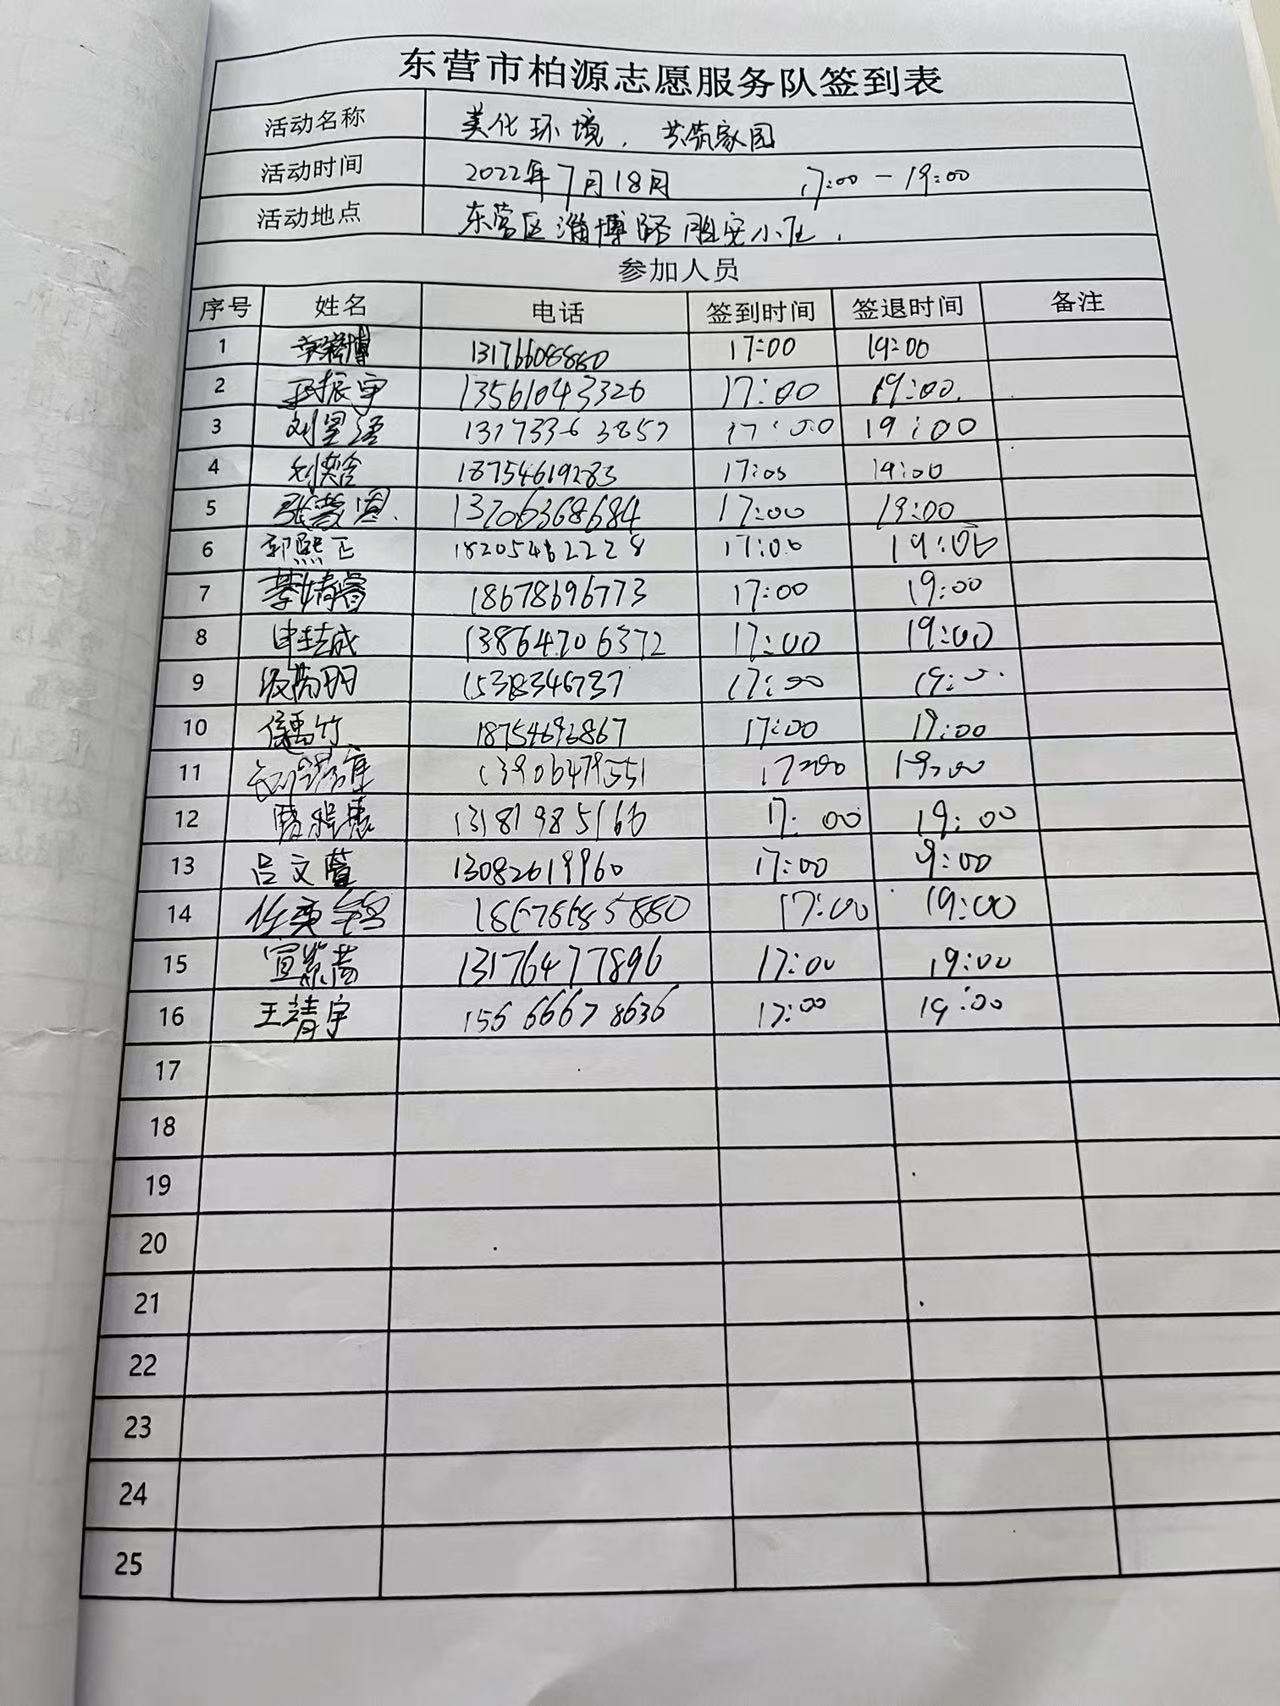 东营市柏源志愿服务队签到表
活动名称 美化环境，共筑家园
活动时间 2022年7月18日 17:00-19:00
活动地点 东营区淄博路 安小区.
参加人员
序号 姓名 电话 签到时间 签退时间 备注
1 13176608880 17:00 19:00
2 振宇 13561043326 17:00 19:00.
3 刘星 17:00 19:00
4 刘奕含 18754619283 17:00 19:00
5 张 13206368684 17:00 19:00
6 郭熙正 18205462228 17:00 19:00
7 李婧睿 18678696773 17:00 19:00
8 成 13864706372 17:00 19:00
9 15318346737 17:00
10 竹 18754693867 17:00 19:00
11 13906479551 17:00 19:00
12 13181985166 17:00 19:00
13 吕文萱 13082619960 17:00 9:00
14 任 18678685880 17:00 19:00
15 宣紫 13176477896 17:00 19:00
16 王靖宇 15666678636 17:00 19:00
17
18
19
20
21
22
23
24
25